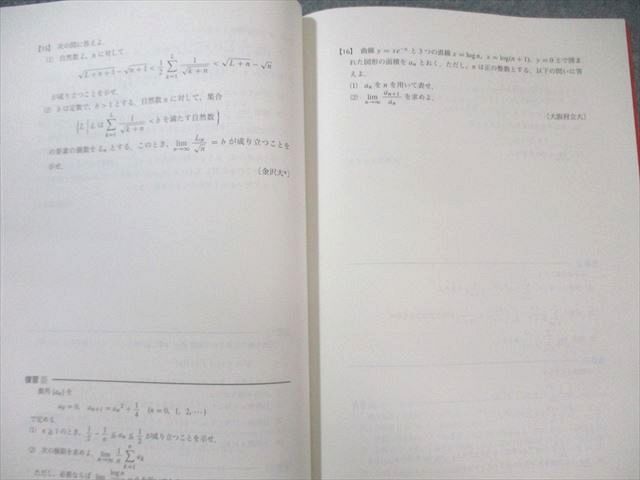 【15】 次の問に答えよ.
(1) 自然数 L, n に対して
√(L+n+1) − √(n+1) < 1/2 Σ_{k=1}^{L} 1/√(k+n) < √(L+n) − √n
が成り立つことを示せ.
(2) b は定数で, b > 1 とする. 自然数 n に対して, 集合
{L | L は Σ_{k=1}^{L} 1/√(k+n) < b を満たす自然数}
の要素の個数を L_n とする. このとき, lim_{n→∞} L_n/√n = b が成り立つことを
示せ.
〔金沢大*〕
復習
数列 {a_n} を
a_0 = 0, a_{n+1} = a_n² + 1/4 (n = 0, 1, 2, ⋯)
で定める.
(1) n ≧ 1 のとき, 1/2 − 1/n ≦ a_n ≦ 1/2 が成り立つことを示せ.
(2) 次の極限を求めよ. lim_{n→∞} 1/n Σ_{k=1}^{n} a_k
ただし, 必要ならば lim_{n→∞} log n/n = 0
【16】 曲線 y = xe^{−x} と 3 つの直線 x = log n, x = log(n+1), y = 0 とで囲ま
れた図形の面積を a_n とおく. ただし, n は正の整数とする. 以下の問いに答
えよ.
(1) a_n を n を用いて表せ.
(2) lim_{n→∞} a_{n+1}/a_n を求めよ.
〔大阪府立大〕